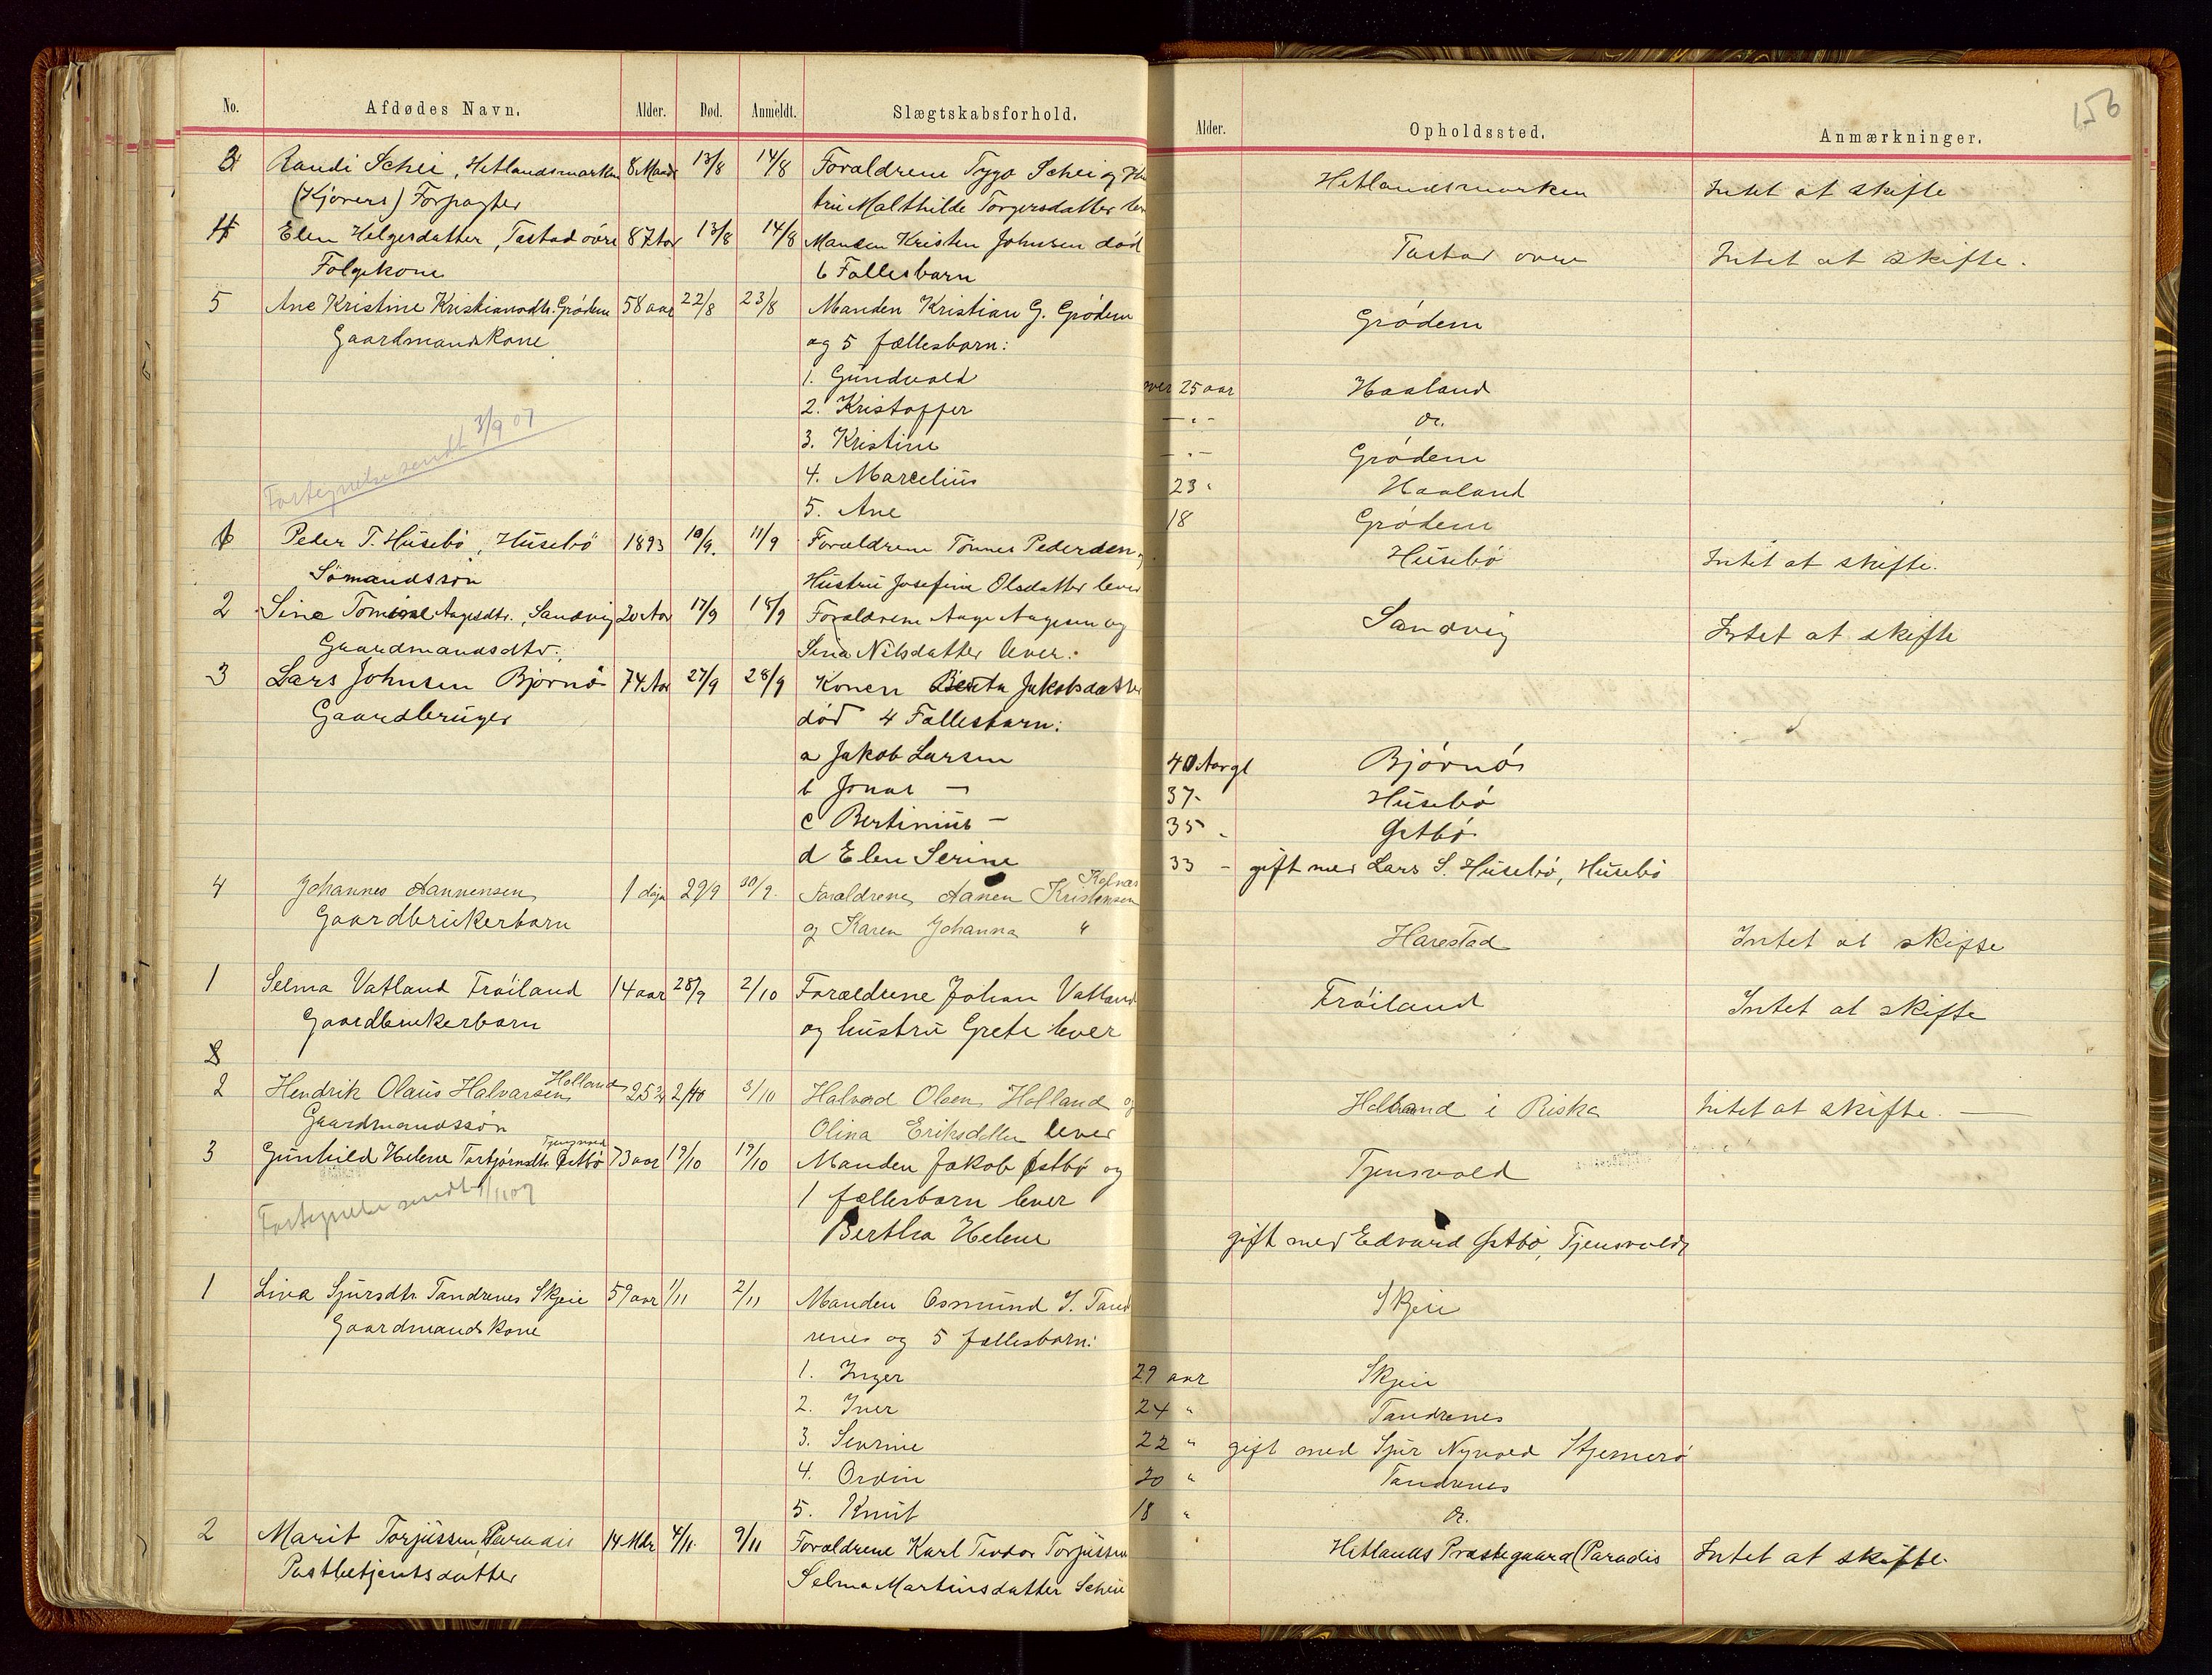 No. Afdødes Navn. Alder. Død. Anmeldt. Slægtskabsforhold. Alder. Opholdssted. Anmærkninger.
156
3 Randi Schei, Hetlandsmarken 8 Maadr 13/8 14/8 Forældrene Tygo Schei og Hu Hetlandsmarken Intet at skifte
(Kjørers) Forpagter trú Malthilde Torgersdatter lev
4 Elen Helgesdatter, Tastad øvre 87 Aar 13/8 14/8 Manden Kristen Johnsen død Tastad øvre Intet at skifte.
Følgekone 6 Fællesbarn
5 Ane Kristine Kristiansdtr. Grødem 58 aar 22/8 23/8 Manden Kristian G. Grødem Grødem
Gaardmandskone og 5 fællesbarn:
1. Gúndvald 25 aar Haaland
2. Kristoffer – " – do.
3. Kristine – " – Grødem
4. Marceliús 23 " Haaland
5. Ane 18 Grødem
Fortegnelse sendt 3/9 07
Peder T. Húsebø, Húsebø 1893 10/9. 11/9 Forældrene Tønnes Pedersen Húsebø Intet at skifte.
Sømandssøn Hústrú Josefine Olsdatter lever
2 Sina Tomine Aagesdtr., Sandvig 20 Aar 17/9 18/9 Forældrene Aage Aagesen og Sandvig Intet at skifte
Gaardmandsdtr. Sina Nilsdatter lever.
3 Lars Johnsen Bjørnø 74 Aar 27/9 28/9 Konen Berta Jakobsdatter
Gaardbrúger død 4 Fællesbarn:
a Jakob Larsen 40 Aar gl Bjørnø
b Jonas — 37 - Húsebø
c Bertiniús — 35 - Østbø
d Elen Serine 33 - gift med Lars S. Húsebø, Húsebø
4 Johannes Aannensen 1 døgn 29/9 30/9. Forældrene Aanen Kristensen Kolnæs
Gaardbrukerbarn og Karen Johanna " Harestad Intet at skifte
1 Selma Vatland Frøiland 14 aar 28/9 2/10 Forældrene Johan Vatland Frøiland Intet at skifte
Gaardbrukerbarn og hústrú Grete lever
2 Hendrik Olaus Halvarsen Holland 25 2/10 3/10 Halvard Olsen Holland og Holland i Riska Intet at skifte. —
Gaardmandssøn Olina Eriksdtter lever
3 Gúnhild Helene Torbjørnsdtr. Østbø Tjensvold 73 aar 17/10 19/10 Manden Jakob Østbø og Tjensvold
Fortegnelse sendt 1/11 07 1 fællesbarn lever
Bertha Helene gift med Edvard Østbø, Tjensvold
1 Lina Sjúrsdtr. Tandrenes Skjeie 59 aar 1/11 2/11 Manden Osmúnd I. Tand Skjeie
Gaardmandskone renes og 5 fællesbarn:
1. Inger 29 aar Skjeie
2. Iver 24 " Tandrenes
3. Sevrine 22 " gift med Sjúr Nyvold Stjernerø
4. Ordin 20 " Tandrenes
5. Knút 18 " do.
2 Marit Torjússen, Paradis 14 Mdr 4/11. 9/11 Forældrene Karl Teodor Torjússen Hetlands Prestegaard (Paradis Intet at skifte.
Postbetjentsdatter Selma Martinsdatter Scheie